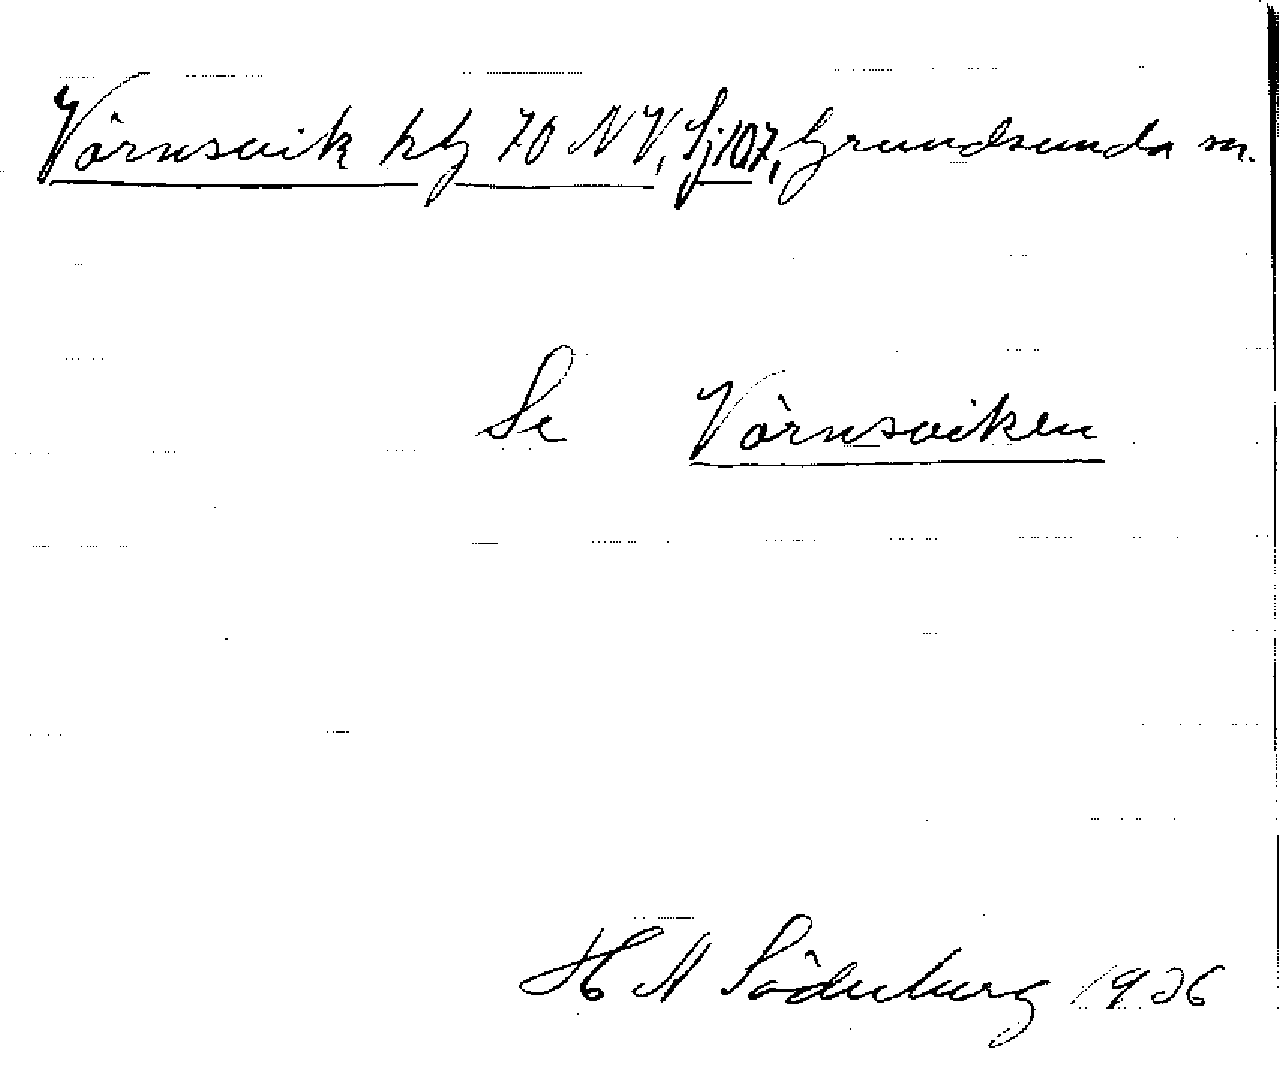 Värnsvik kbl 70 NV, Sj 107, Grundsunda sn.
Se Värnsviken
H A Söderberg 1936